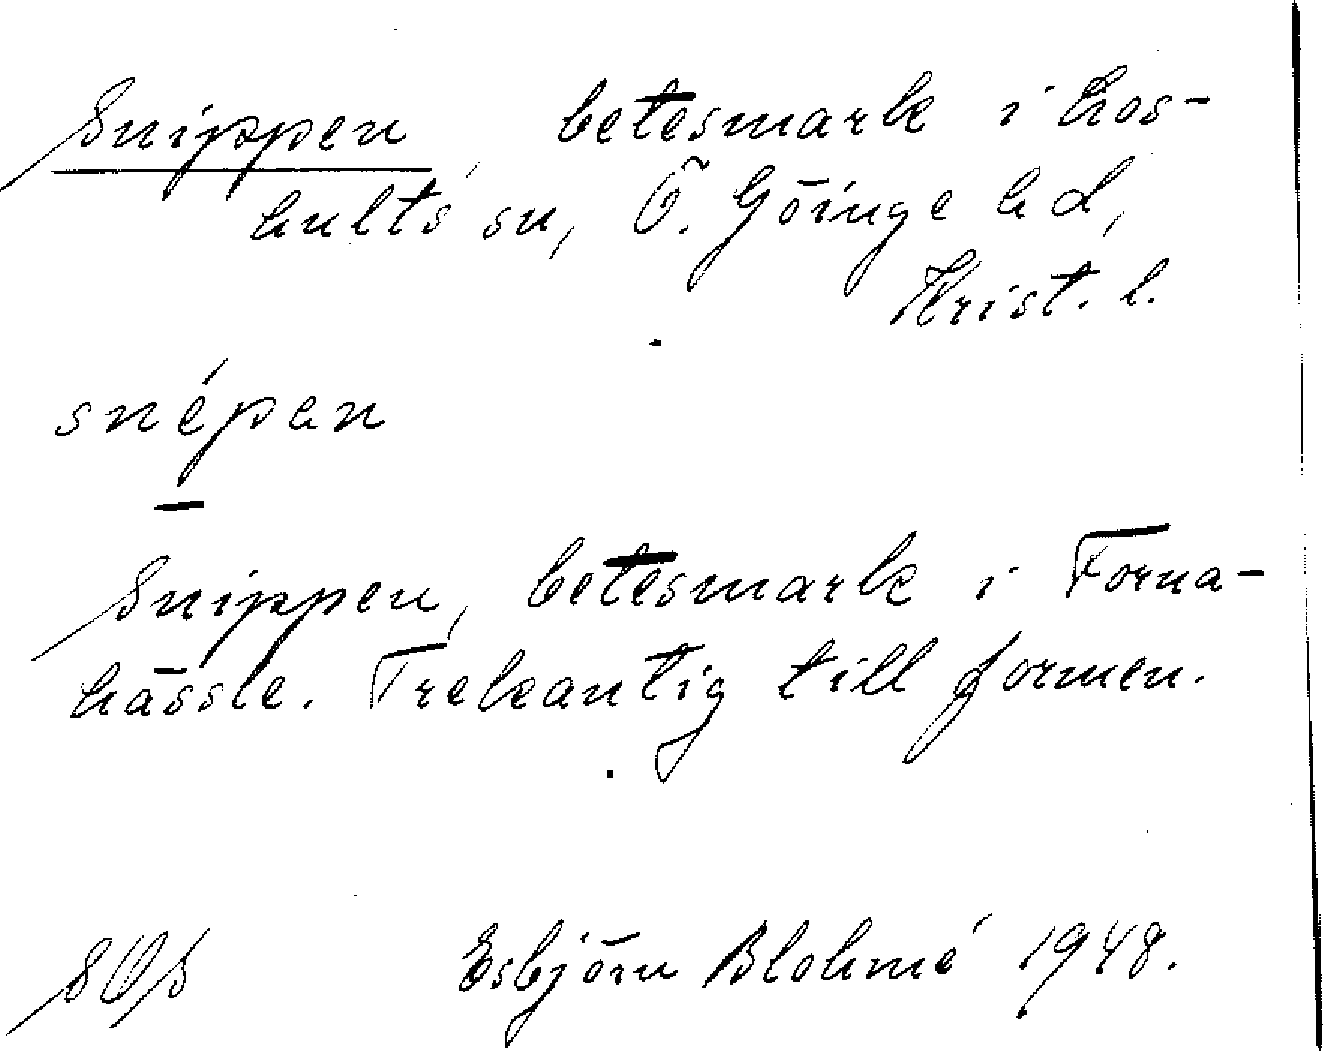 Snippen, betesmark i Los-
hults sn, Ö. Göinge hd,
Krist. l.
snépan
Snippen, betesmark i Forna-
hässle. Trekantig till formen.
Esbjörn Blohmé 1948.